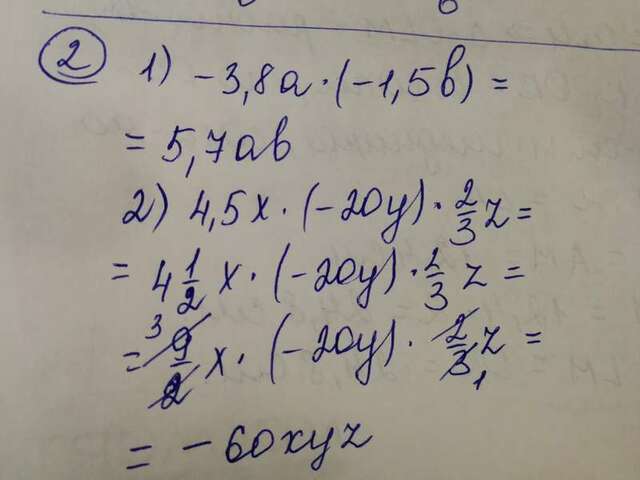 2
1) -3,8a·(-1,5b) =
= 5,7ab
2) 4,5x·(-20y)·2/3z=
= 4 1/2 x·(-20y)·2/3 z =
= 3 9/2 x·(-20y)·2/3 1 z =
= -60xyz